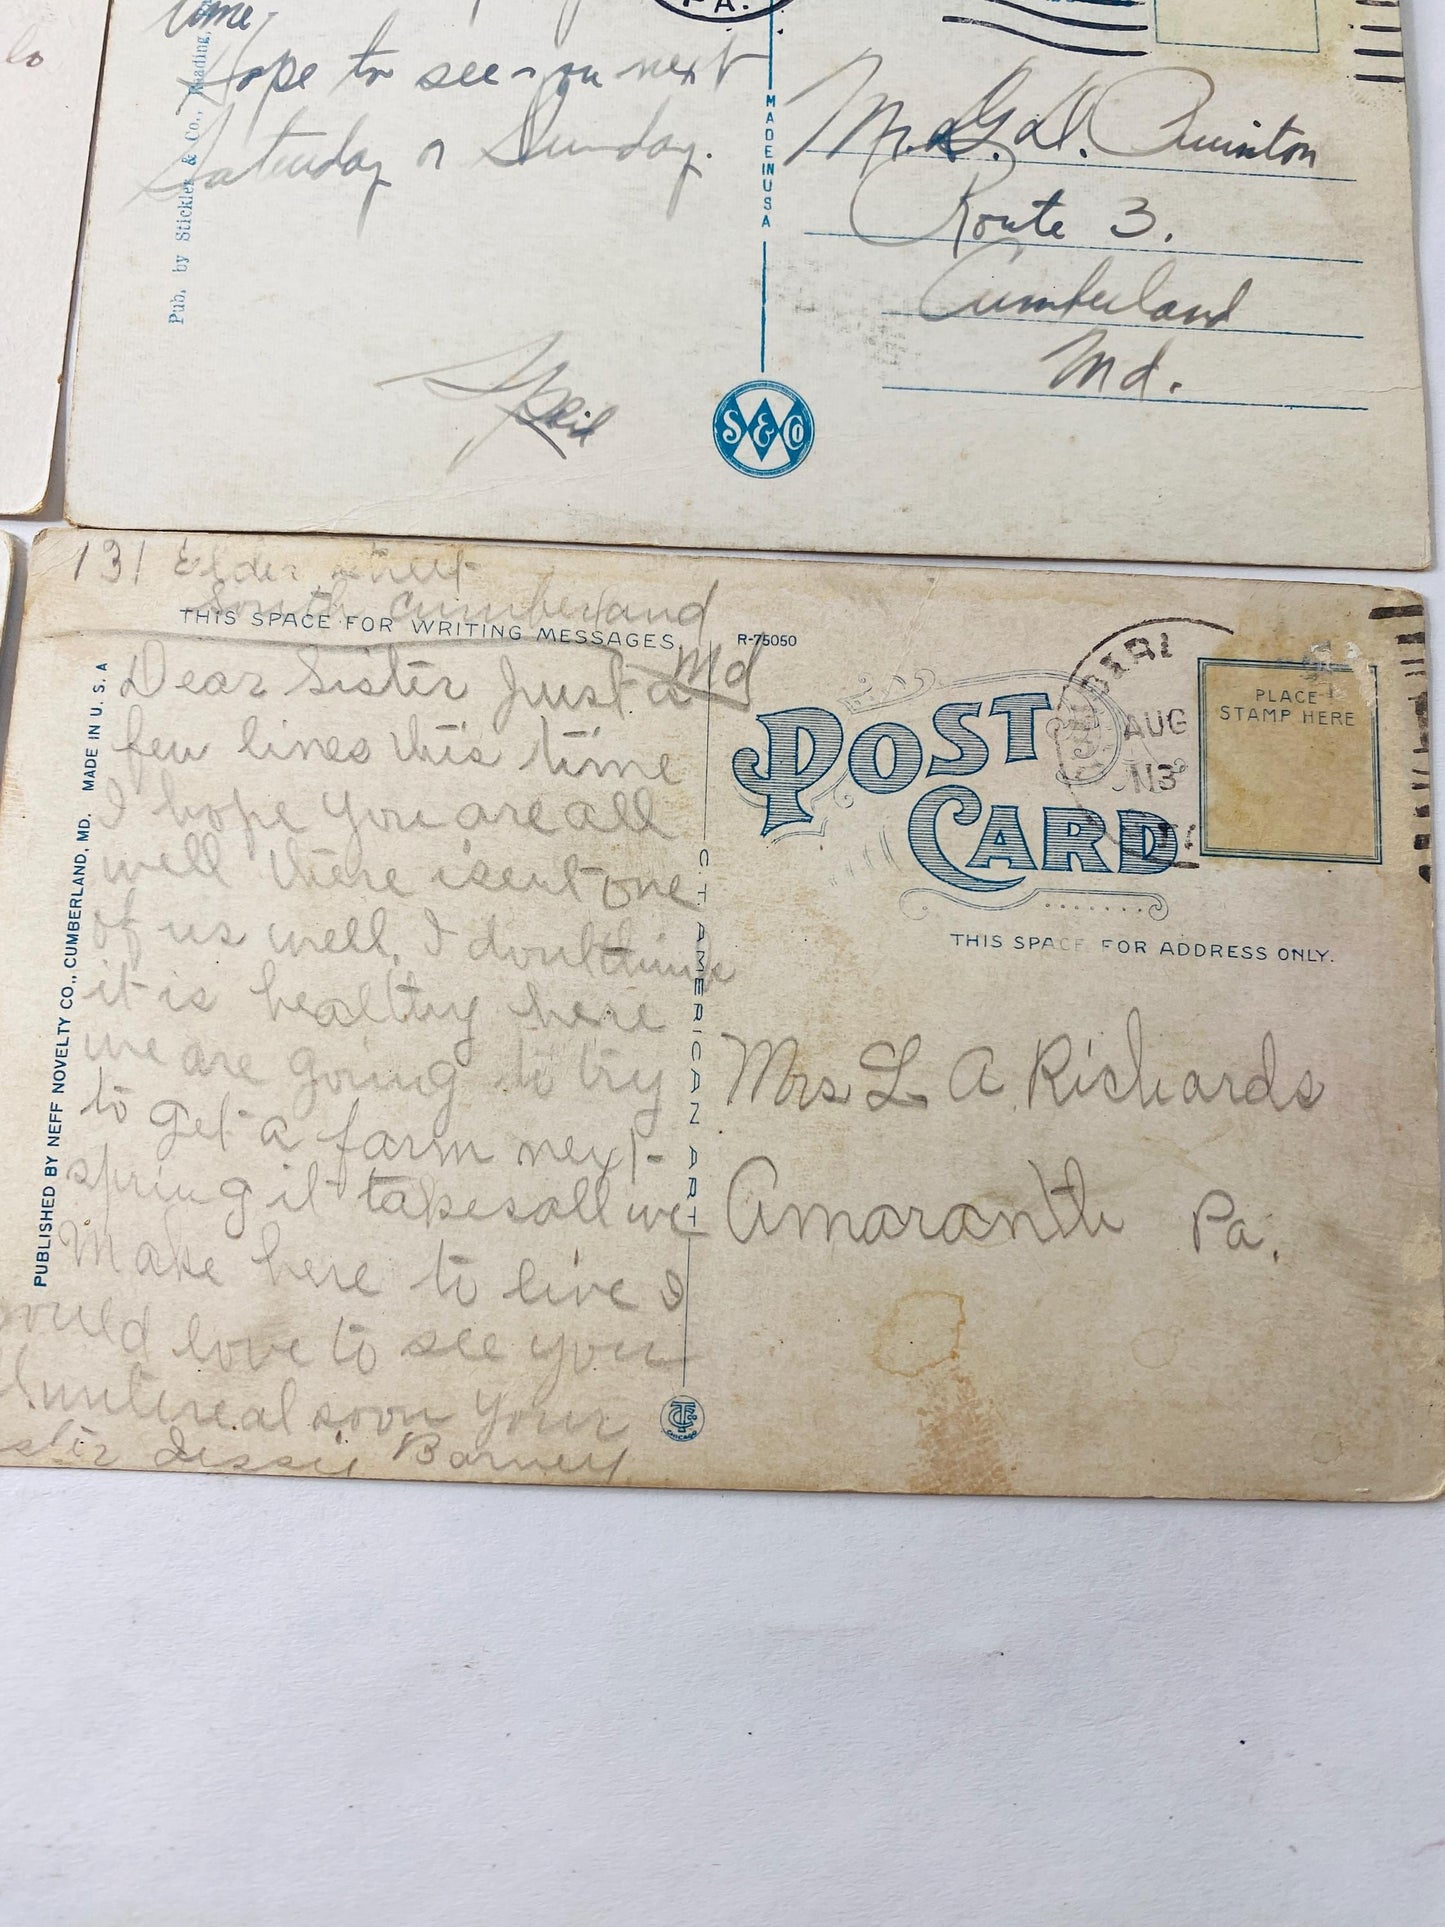 time
Hope to see you next
Saturday or Sunday.
Pub. by Stickler & Co., Reading,
MADE IN USA
PA.
Route 3.
Cumberland
Md.
S & CO
131 Elder street
South Cumberland
Md
THIS SPACE FOR WRITING MESSAGES
R-75050
Dear Sister Just a
few lines this time
I hope you are all
well there isent one
of us well. I dont think
it is healthy here
we are going to try
to get a farm next
spring it takes all we
Make here to live I
would love to see you
real soon your
Sister Jessie Barney
PUBLISHED BY NEFF NOVELTY CO., CUMBERLAND, MD. MADE IN U. S. A
C. T. AMERICAN ART
CHICAGO
POST
CARD
AUG
PLACE
STAMP HERE
THIS SPACE FOR ADDRESS ONLY.
Mrs L A Richards
Amaranth Pa.